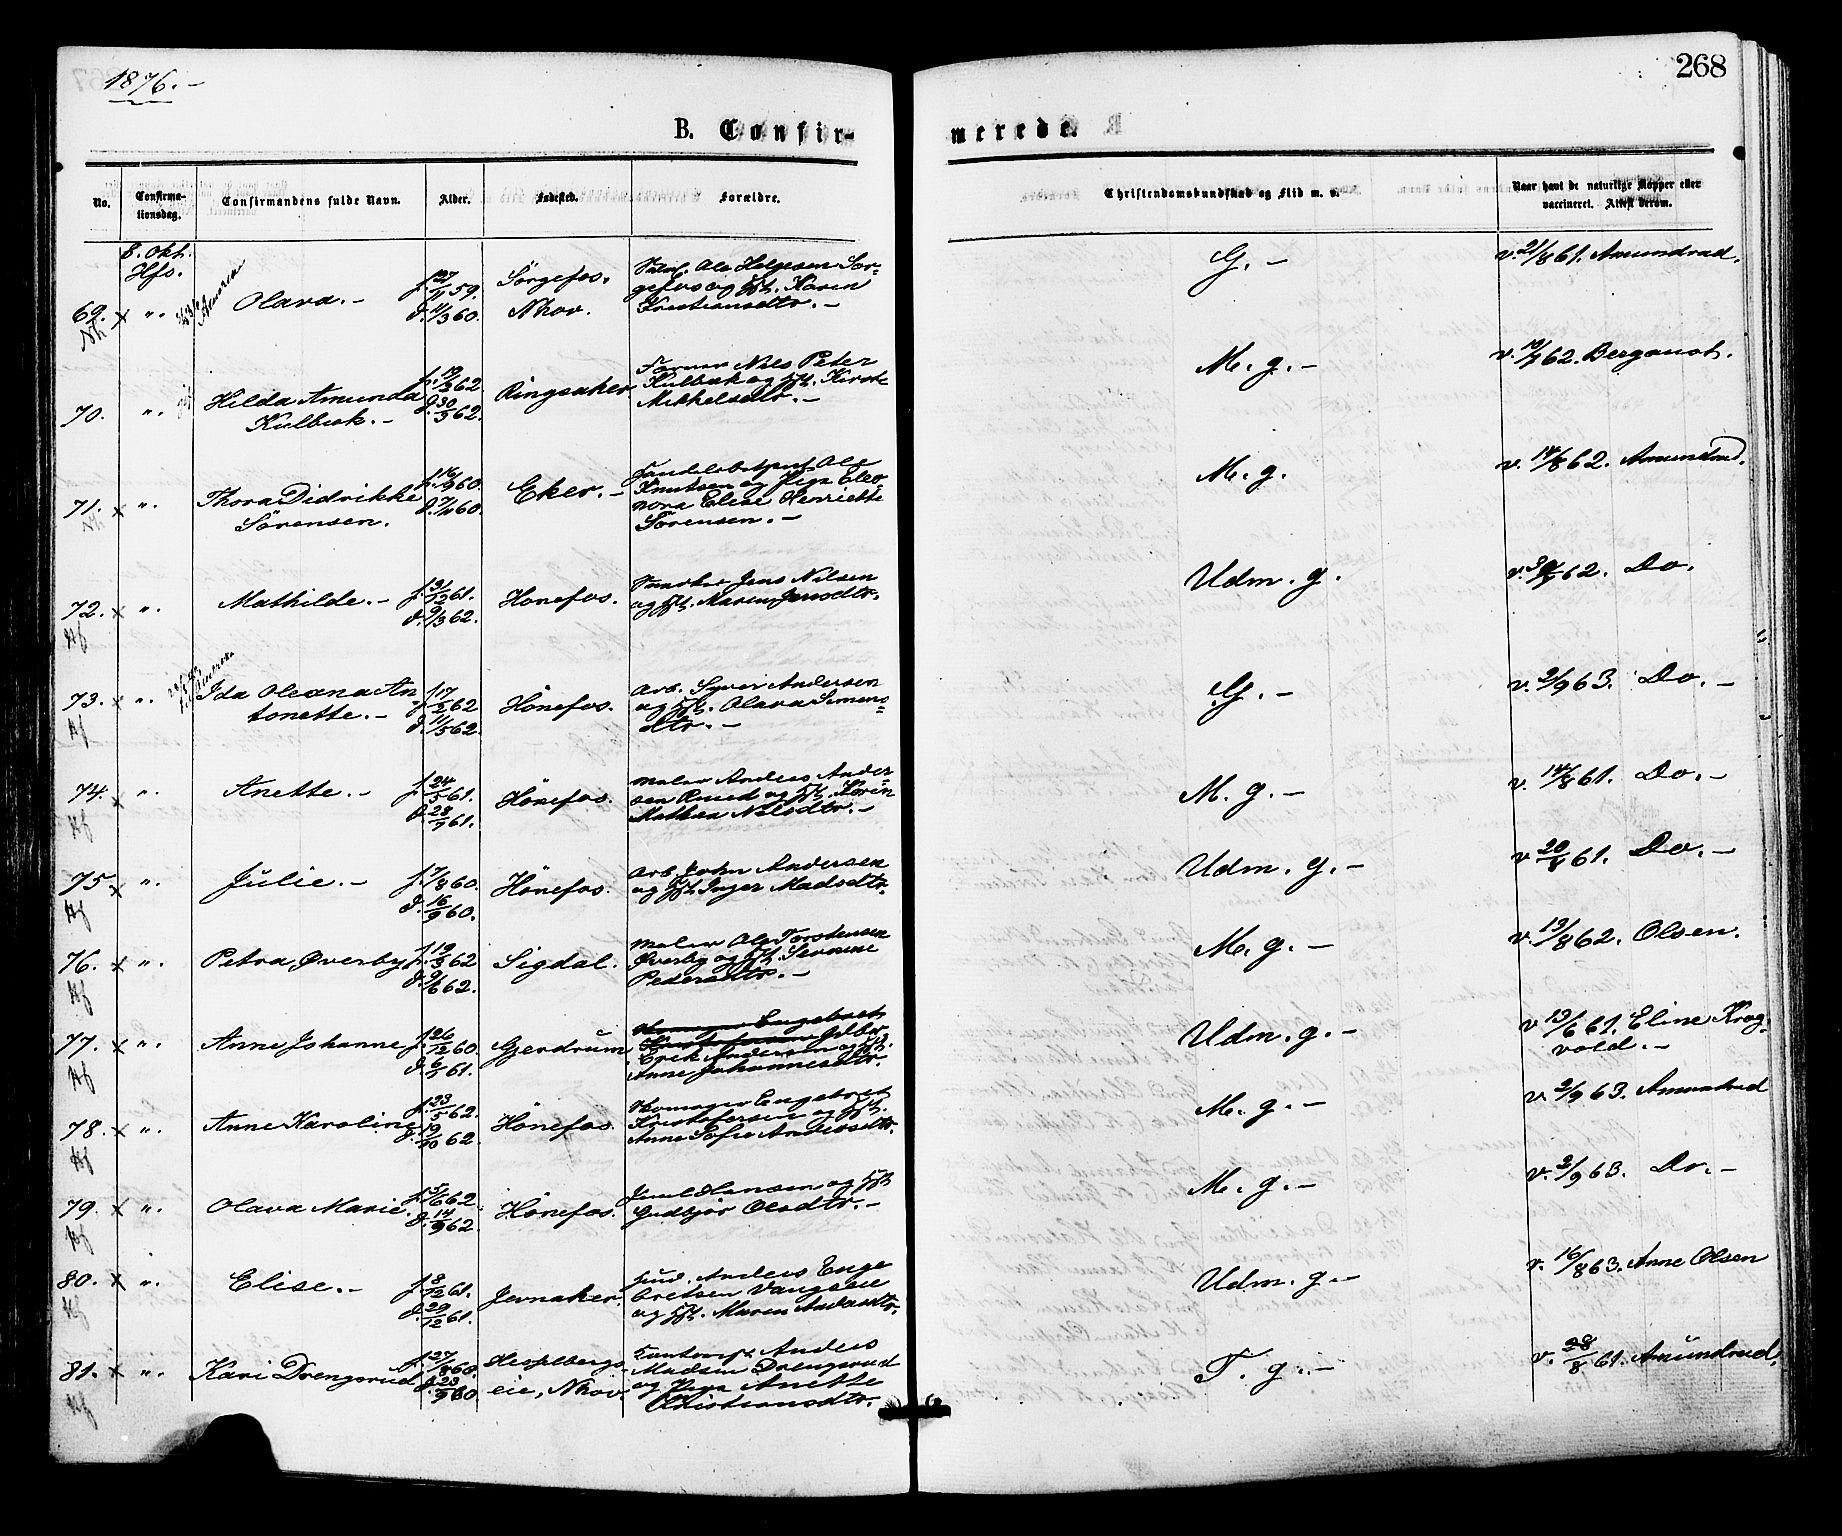 1876.-
268
B. Confir-
merede.
No.
Confirma-
tionsdag.
Confirmandens fulde Navn.
Alder.
Fødested.
Forældre.
Christendomskundskab og Flid m. v.
Naar havt de naturlige Kopper eller
vaccineret. Attest derom.
8. Okt.
Hfs.
69. x „. Olava.- f.27/11 59. d.11/3 60. Sørgefos. Nhov.
Ole Helgesen Sør-
gefos og Hst. Karen
Kristiansdtr.-
G.-
v.21/8 61. Amundrud.
70. „. Hilda Amunda
Kulbæk.-
f.19/3 62
Ringsaker
Farver Nils Peter
Kulbæk og Hst. Kirste
Mikkelsdtr.-
M. g.-
v.19/9 62. Bergaust.
71. x „. Thora Didrikke
Sørensen.
f.16/9 60.
d.7/11 60.
Eker.-
Ole
Knutsen og Pige Eleo-
nora Elise Henriette
Sørensen.-
M. g.
v.14/8 62. Amundrud.
72. x „. Mathilde.-
f.31/12 61.
d.9/3 62.
Hønefos.
Snedker Jens Nilsen
og Hst. Maren Jensdtr.
Udm. g.
62. Do.
73. x „. Ida Oleana An
tonette.-
f.17/2 62
d.11/5 62.
Hønefos.
Arb. Syver Andersen
og Hst. Olava Simens-
dtr.-
G.-
v.2/9 63. Do.-
74. „. Anette.-
f.24/5 61.
d.28/7 61.
Hønefos.
Maler Anders Ander-
sen Ruud og Hst. Karen
Mathea Nilsdtr.-
M. g.-
v.14/8 61. Do.-
75 x „. Julie.-
f.7/8 60.
d.16/9 60.
Hønefos.
Arb. John Andersen
og Hst. Inger Madsdtr.
Udm. g.-
v.20/8 61. Do.-
76. x „. Petra Øverby
f.19/3 62
d.9/6 62.
Sigdal.
Maler Ole Torstensen
Øverby og Hst. Severine
Pedersdtr.-
M. g.-
v.13/8 62. Olsen.
77. x „. Anne Johanne
f.26/12 60.
61.
Gjerdrum.
Skomager Engebret
Kristofersen Gelber.
Erik Andersen og Hst.
Anne Johannesdtr.
Udm. g.-
v.13/6 61. Eline Krog-
vold.-
78. x „. Anne Karoline
f.23/5 62.
d.19/10 62.
Hønefos
Skomager Engebret
Kristofersen og Hst.
Anne Sofie Andersdtr.
M. g.-
v.2/9 63. Amundrud
79. x „. Olava Marie.
f.5/6 62.
d.14/9 62.
Hønefos.
Hansen og Hst
Gudbjør Olsdtr.-
M. g.-
v.2/9 63. Do.-
80. x „. Elise.-
f.8/12 61.
d.29/12 61.
Jevnaker.
Anders Enge
bretsen Vangseie
og Hst. Maren Andersdtr.
Udm. g.-
v.16/8 63. Anne Olsen
81. x „. Kari Drengsrud
f.27/8 60.
d.23/9 60
Hesselbergs-
eie, Nhov.
Anders
Madsen Drengsrud
og Pige Anette
Christiansdtr.
T. g.-
v.28/8 61. Amundrud.